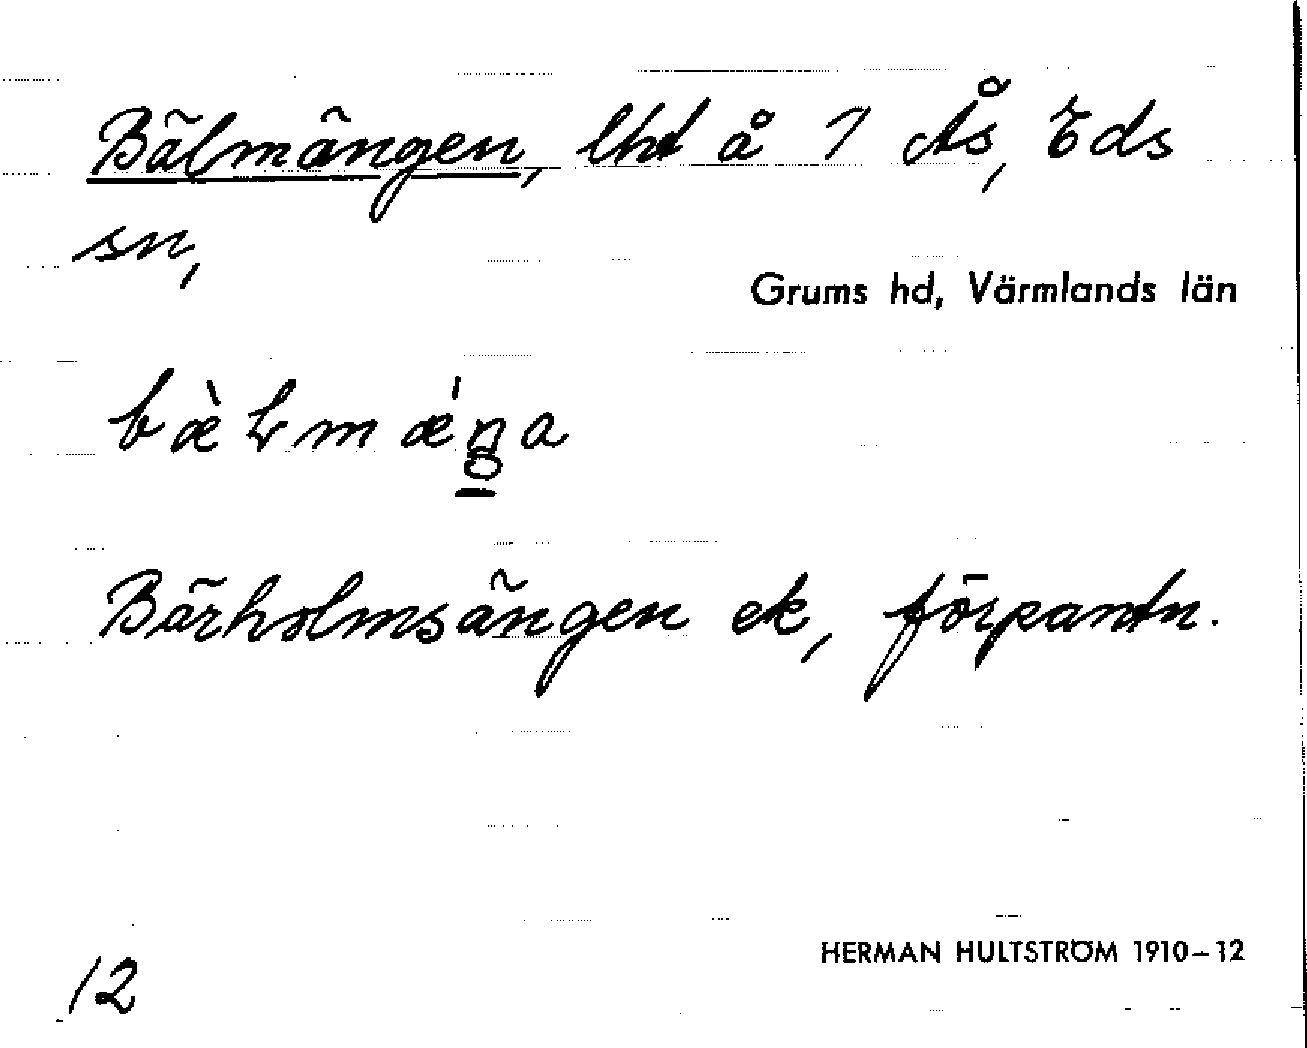 Bälmängen, lht å 1 Ås, Eds
sn,
Grums hd, Värmlands län
Bärholmsängen ek, förpantn.
HERMAN HULTSTRÖM 1910–12
12